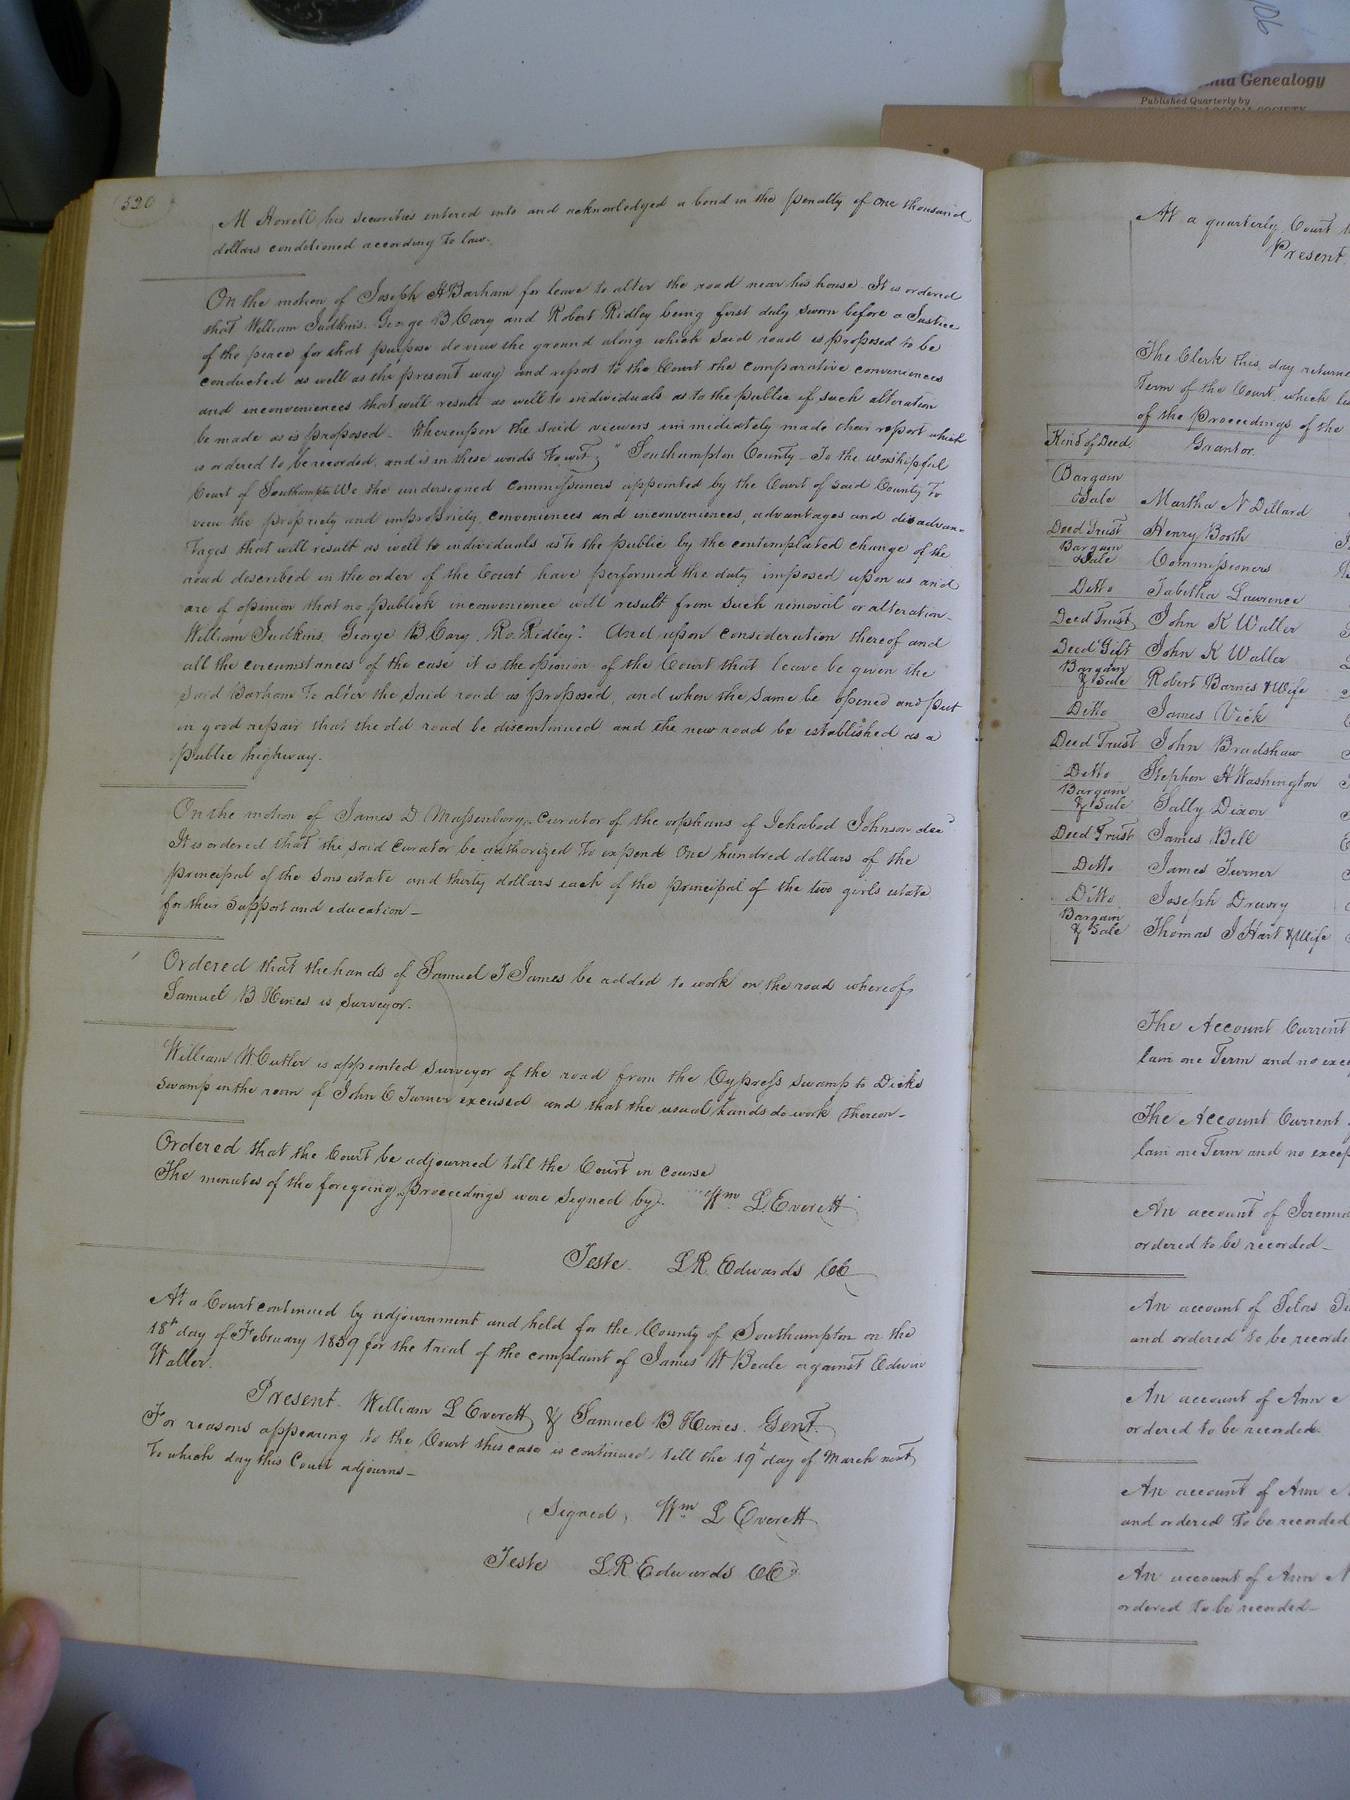 320
M Howell his securities entered into and acknowledged a bond in the penalty of one thousand
dollars conditioned according to law.
On the motion of Joseph H Barham for leave to alter the road near his house. It is ordered
that William Judkins, George B Cary and Robert Ridley being first duly sworn before a Justice
of the peace for that purpose do view the ground along which said road is proposed to be
conducted as well as the present way and report to the Court the comparative conveniences
and inconveniences that will result as well to individuals as to the public if such alteration
be made as is proposed. Whereupon the said viewers immediately made their report which
is ordered to be recorded, and is in these words To wit, "Southampton County - To the worshipful
Court of Southampton We the undersigned Commissioners appointed by the Court of said County To
view the propriety and impropriety, conveniences and inconveniences, advantages and disadvan-
tages that will result as well to individuals as to the public by the contemplated change of the
road described in the order of the Court have performed the duty imposed upon us and
are of opinion that no publick inconvenience will result from such removal or alteration.
William Judkins, George B Cary, Ro. Ridley". And upon consideration thereof and
all the circumstances of the case it is the opinion of the Court that leave be given the
said Barham to alter the said road as proposed, and when the same be opened and put
in good repair that the old road be discontinued and the new road be established as a
public highway.
On the motion of James D Massenburg, Curator of the orphans of Ichabod Johnson decd
It is ordered that the said Curator be authorized to expend One hundred dollars of the
principal of the sons estate and thirty dollars each of the principal of the two girls estate
for their support and education -
Ordered that the hands of Samuel T James be added to work on the road whereof
Samuel B Hines is surveyor.
William W Cutler is appointed surveyor of the road from the Cypress swamp to Dicks
swamp in the room of John C Turner excused and that the usual hands do work thereon -
Ordered that the Court be adjourned till the Court in course
The minutes of the foregoing Proceedings were signed by. Wm L. Everett
Teste L R. Edwards CC
At a Court continued by adjournment and held for the County of Southampton on the
18t day of February 1839 for the trial of the complaint of James W Beale against Edwin
Waller.
Present. William L Everett & Samuel B Hines. Gent.
For reasons appearing to the Court this case is continued till the 19t day of March next
To which day this Court adjourns -
(Signed) Wm L Everett
Teste L.R. Edwards CC
06
Genealogy
Published Quarterly by
At a quarterly Court
Present.
The Clerk this day
Term of the Court, which
of the Proceedings of the
Kind of Deed. Grantor.
Bargain
& Sale Martha N Dillard
Deed Trust Henry Booth
Bargain
& Sale Commissioners
Ditto Tabitha Lawrence
Deed Trust John K Waller
Deed Gift John K Waller
Bargain
& Sale Robert Barnes & Wife
Ditto James Vick
Deed Trust John Bradshaw
Ditto Stephen H Washington
Bargain
& Sale Sally Dixon
Deed Trust James Bell
Ditto James Turner
Ditto Joseph Drewry
Bargain
& Sale Thomas J Hart & Wife
The Account Current
lain one Term and no
The Account Current
lain one Term and no
An account of
ordered to be recorded -
An account of
and ordered to be
An account of Ann
ordered to be recorded.
An account of Ann
and ordered to be recorded
An account of Ann
ordered to be recorded -